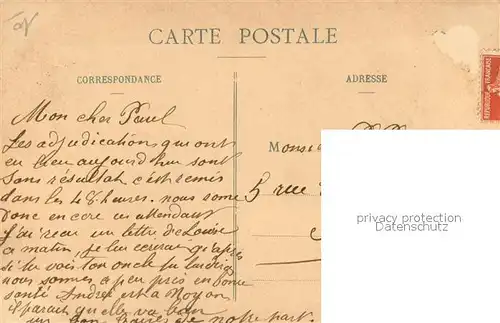 CARTE POSTALE
CORRESPONDANCE
Mon cher Paul
Les adjudications qui ont
eu lieu aujourd'hui sont
sans résultat c'est remis
dans les 48 heures. nous somme
donc encore en attendant
J'ai recu un lettre de Louise
ce matin, je lui
si tu vois ton oncle tu lui diras
nous sommes a peu près en bonne
santé André est a Noyon
il parait qu'elle va bien
un bon de notre part.
ADRESSE
Monsieu
5 rue
REPUBLIQUE FRANCAISE
privacy protection
Datenschutz